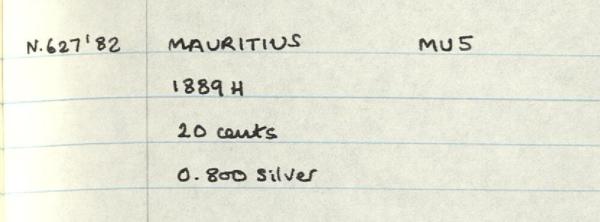 N.627'82 MAURITIUS MU5
1889 H
20 cents
0.800 Silver